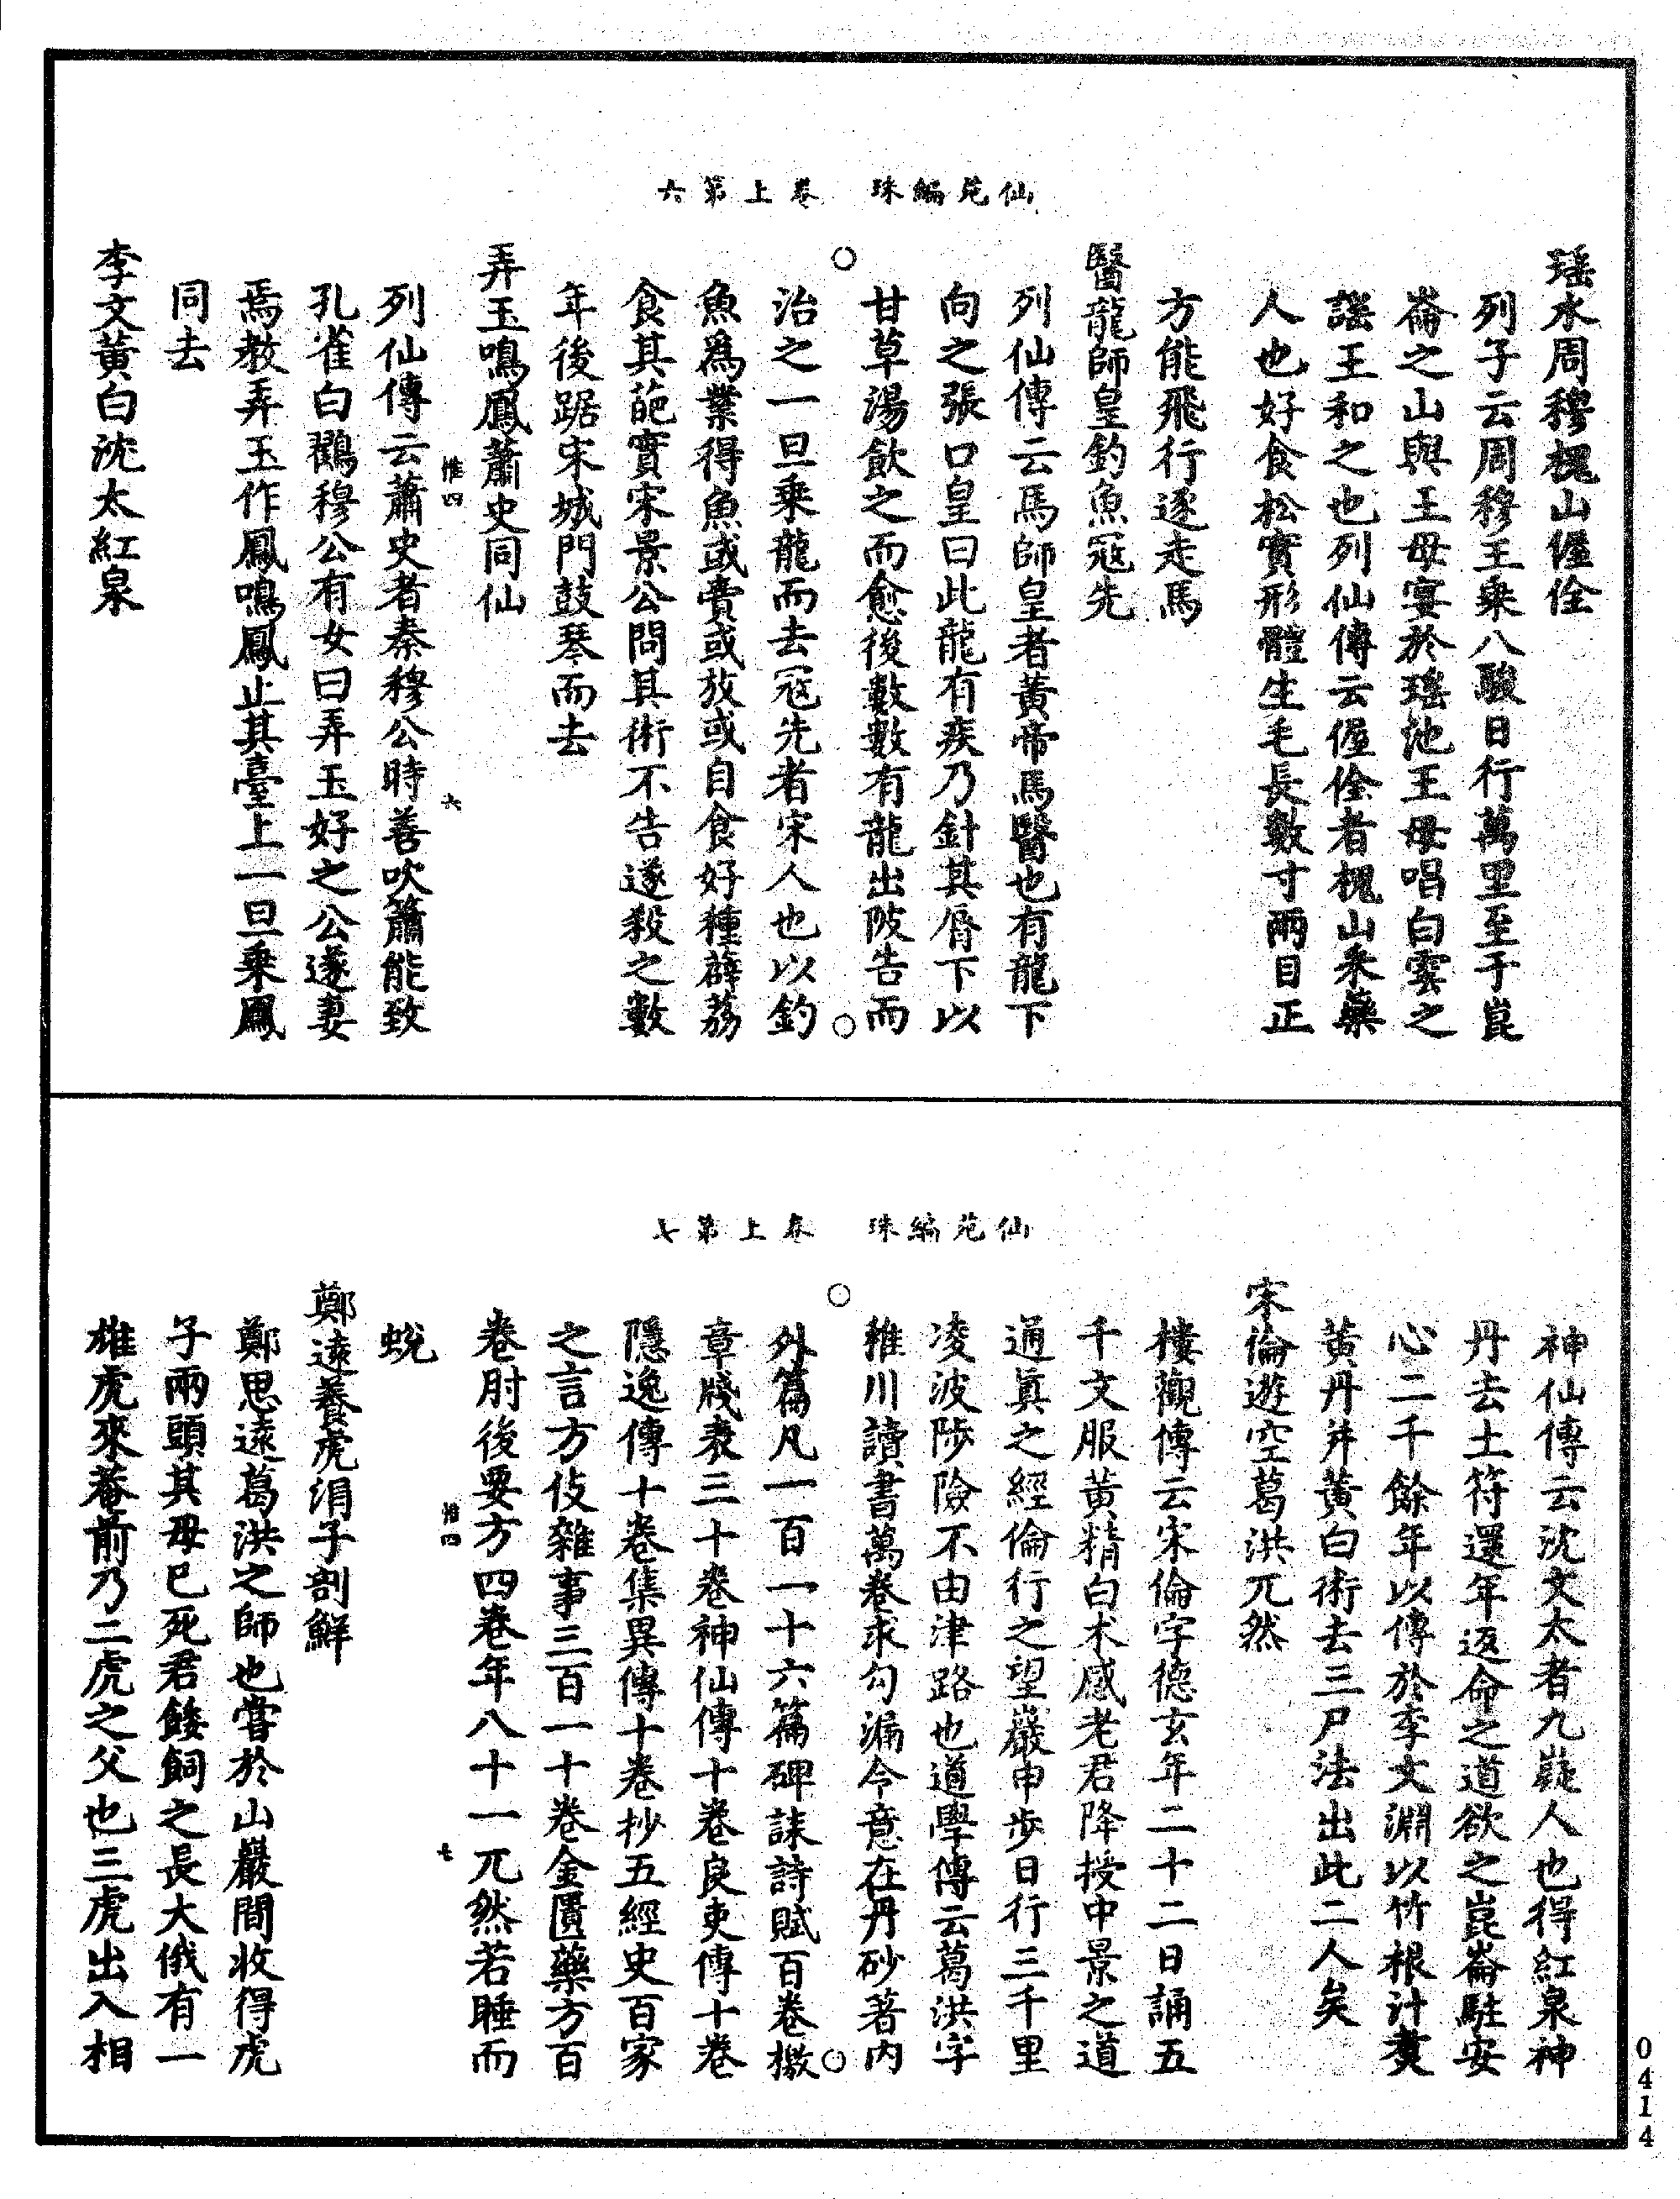 仙苑編珠　卷上第六
瑶水周穆槐山偓佺
列子云周穆王乘八駿日行萬里至于崑
崙之山與王母宴於瑤池王母唱白雲之
謠王和之也列仙傳云偓佺者槐山采藥
人也好食松實形體生毛長數寸兩目正
方能飛行逐走馬
醫龍師皇釣魚冦先
列仙傳云馬師皇者黃帝馬醫也有龍下
向之張口皇曰此龍有疾乃針其脣下以
甘草湯飲之而愈後數數有龍出陂告而
治之一旦乘龍而去冦先者宋人也以釣
魚爲業得魚或賣或放或自食好種薜荔
食其葩實宋景公問其術不告遂殺之數
年後踞宋城門鼓琴而去
弄玉鳴鳳蕭史同仙
惟四　六
列仙傳云蕭史者秦穆公時善吹簫能致
孔雀白鸛穆公有女曰弄玉好之公遂妻
焉教弄玉作鳳鳴鳳止其臺上一旦乘鳳
同去
李文黃白沈太紅泉
仙苑編珠　卷上第七
神仙傳云沈文太者九嶷人也得紅泉神
丹去土符還年返命之道欲之崑崙駐安
心二千餘年以傳於李文淵以竹根汁煑
黃丹并黃白術去三尸法出此二人矣
宋倫遊空葛洪兀然
樓觀傳云宋倫字德玄年二十二日誦五
千文服黃精白术感老君降授中景之道
通眞之經倫行之望巖申步日行三千里
凌波陟險不由津路也道學傳云葛洪字
稚川讀書萬卷求勾漏令意在丹砂著內
外篇凡一百一十六篇碑誄詩賦百卷檄
章牋表三十卷神仙傳十卷良吏傳十卷
隱逸傳十卷集異傳十卷抄五經史百家
之言方伎雜事三百一十卷金匱藥方百
卷肘後要方四卷年八十一兀然若睡而
惟四　七
蛻
鄭遠養虎涓子剖鮮
鄭思遠葛洪之師也嘗於山巖間收得虎
子兩頭其母巳死君餧飼之長大俄有一
雄虎來菴前乃二虎之父也三虎出入相
0414